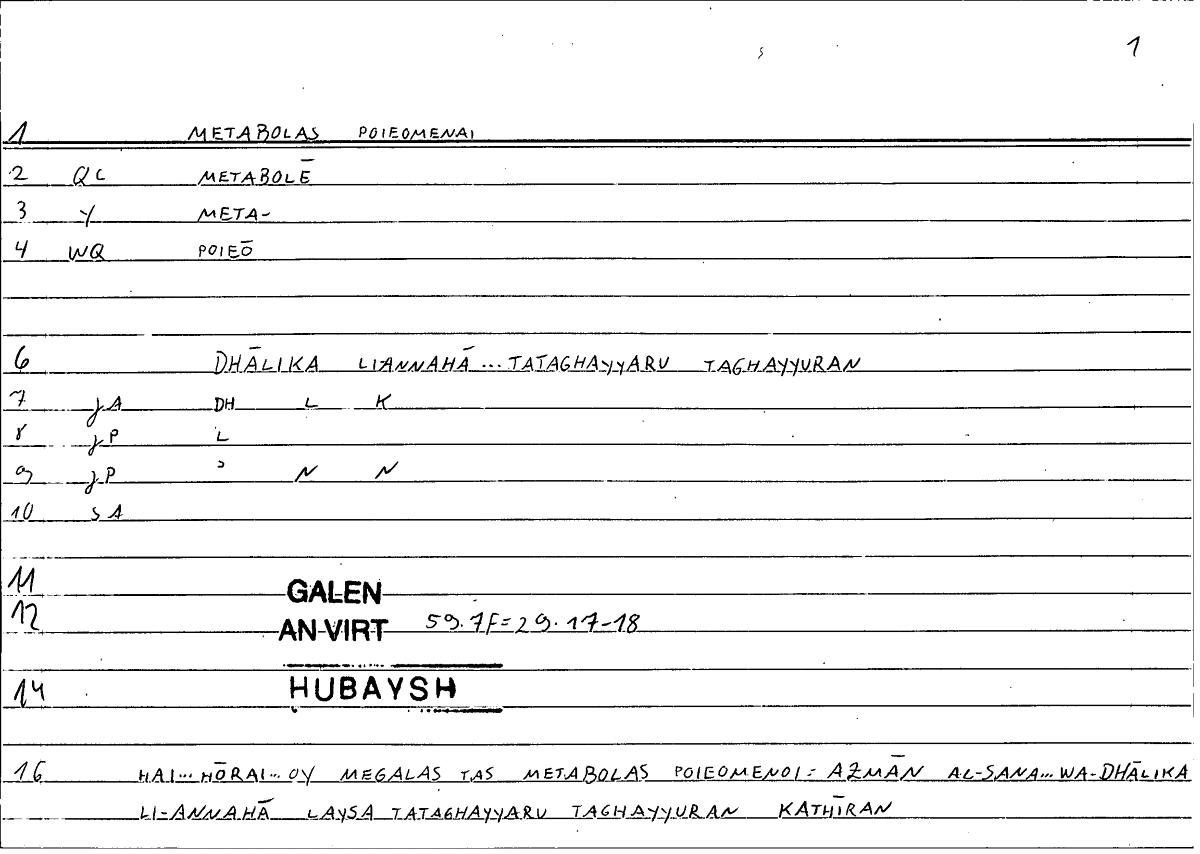 1
1 METABOLAS POIEOMENAI
2 QC METABOLĒ
3 Y META-
4 WQ POIEŌ
6 DHĀLIKA LIANNAHĀ... TATAGHAYYARU TAGHAYYURAN
7 jA DH L K
8 jP L
9 jP ʾ N N
10 SA
11 GALEN
12 AN VIRT 59.7F=29.17-18
14 HUBAYSH
16 HAI... HŌRAI... OY MEGALAS TAS METABOLAS POIEOMENOI = AZMĀN AL-SANA... WA-DHĀLIKA
LI-ANNAHĀ LAYSA TATAGHAYYARU TAGHAYYURAN KATHĪRAN